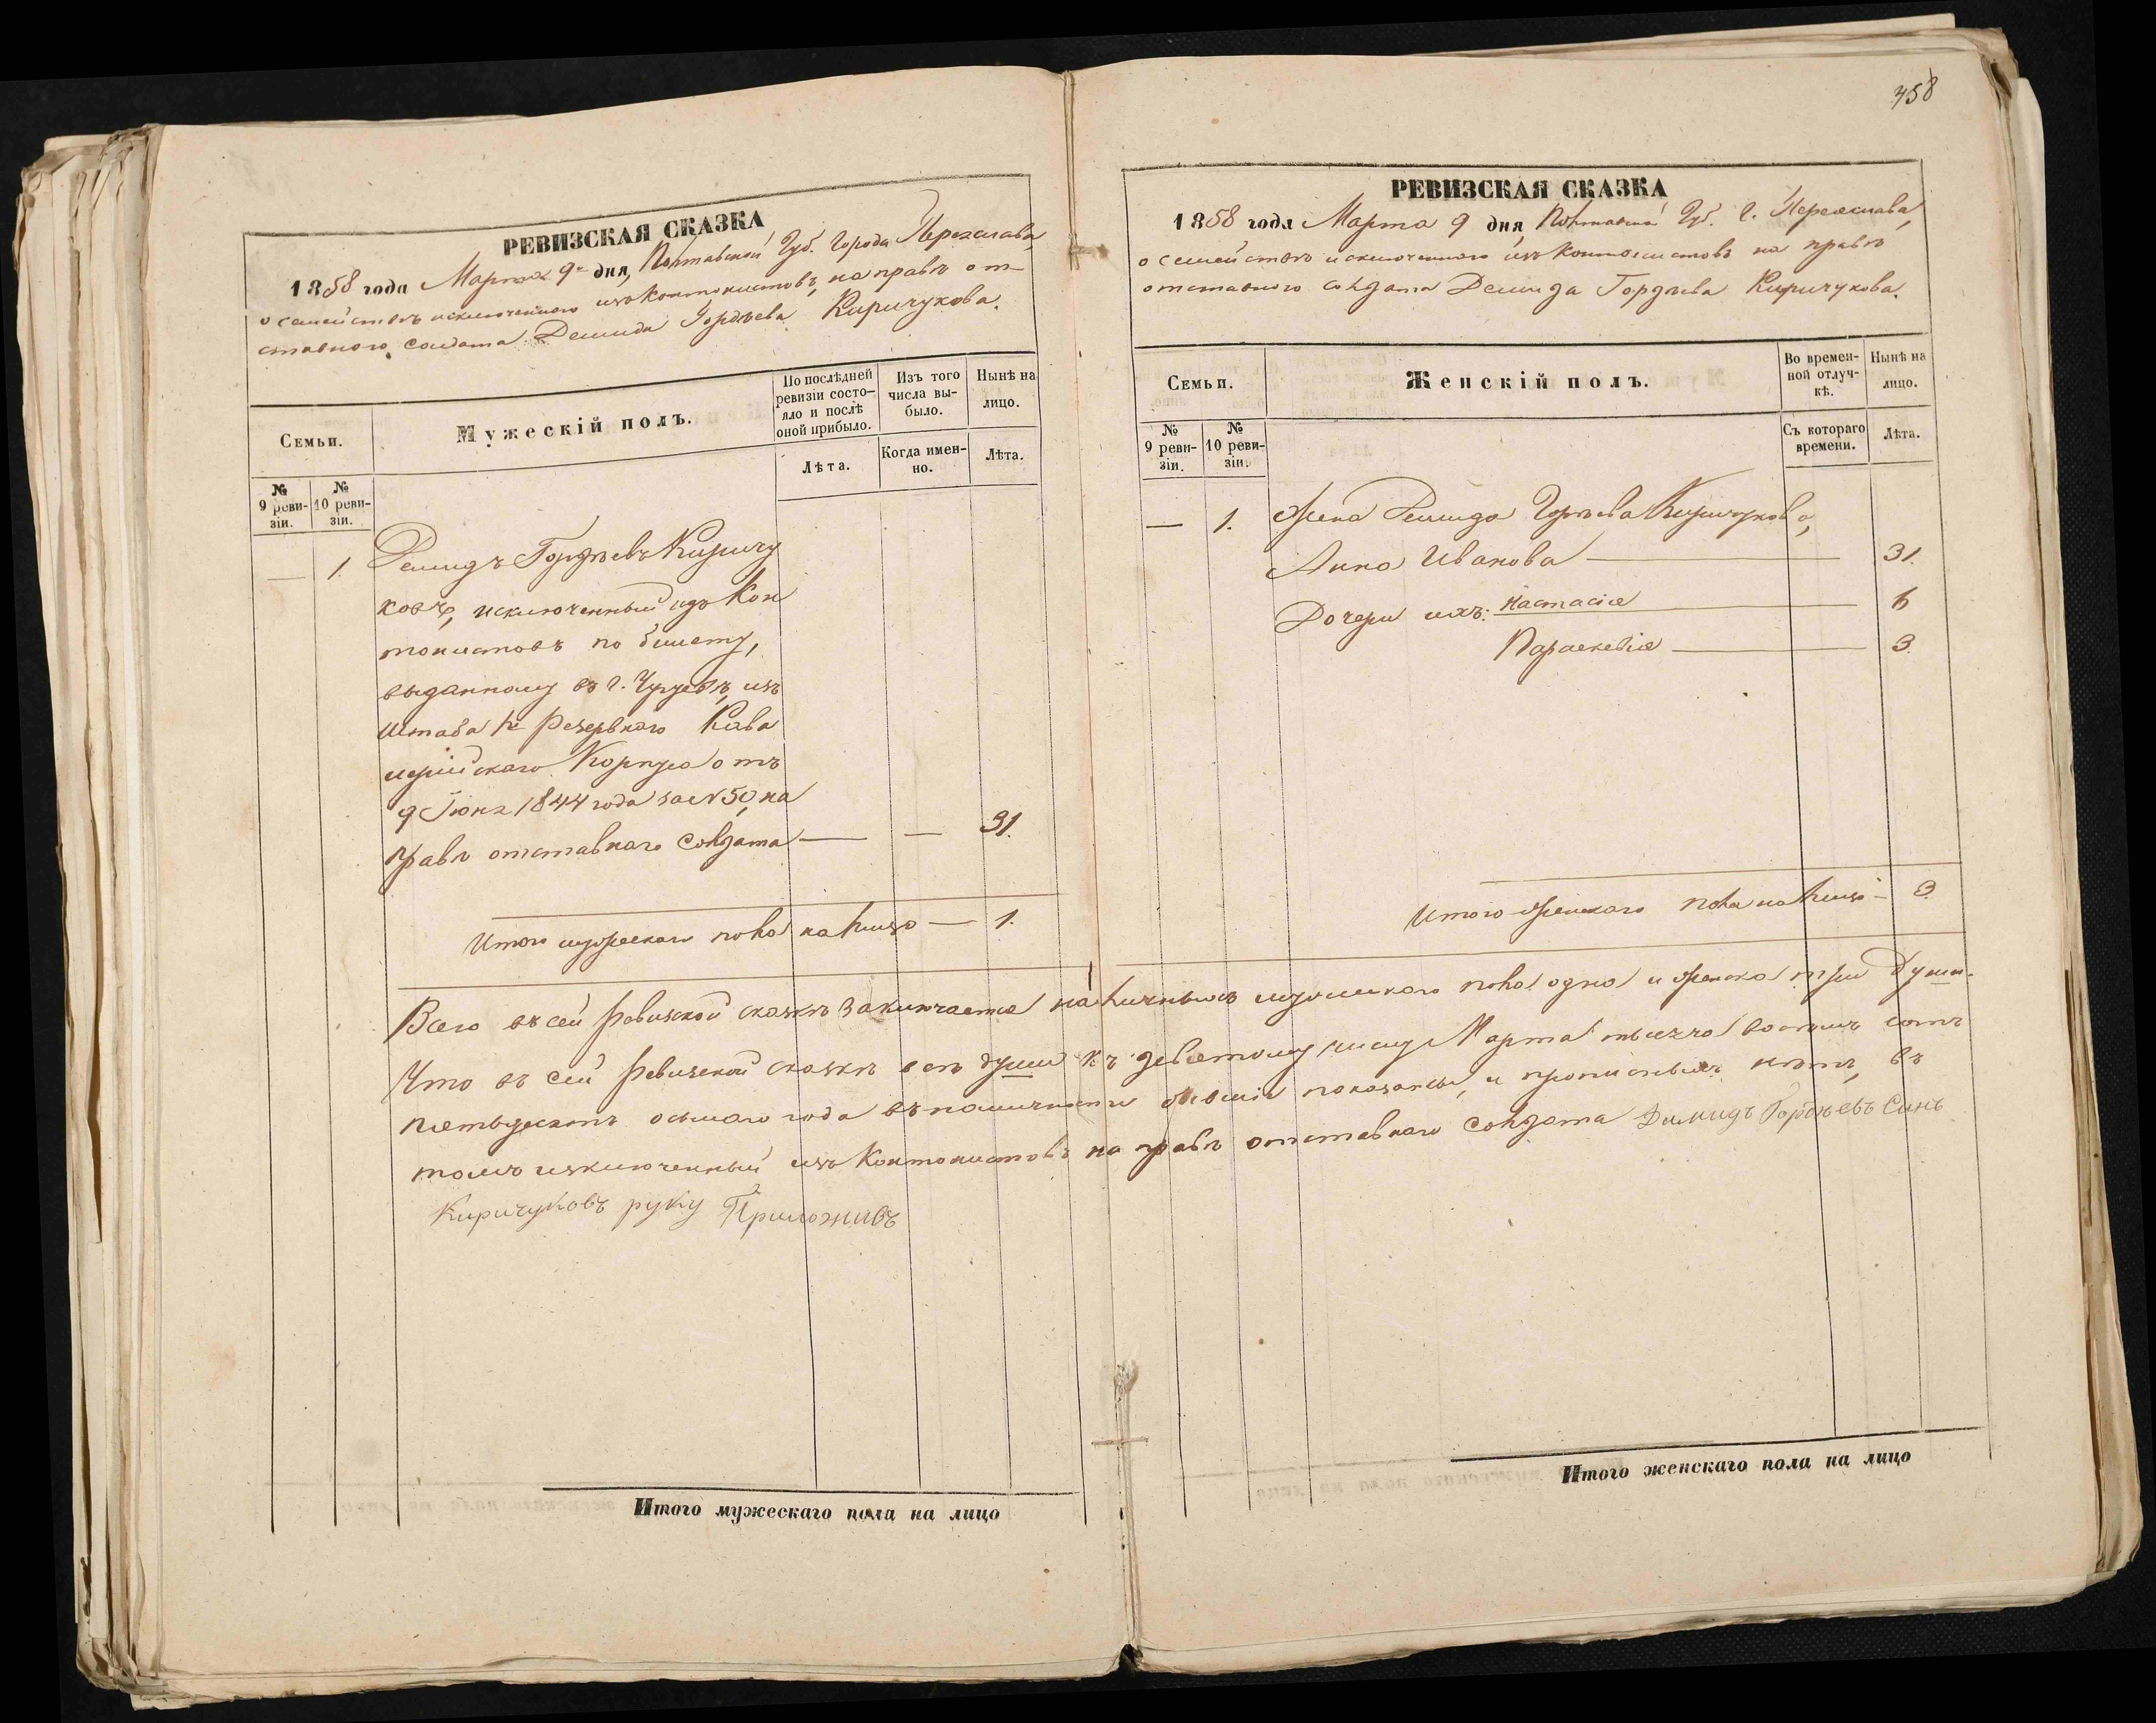 РЕВИЗСКАЯ СКАЗКА
1858 года Марта 9го дня, Полтавской Губ. Города Переяслава,
о семействѣ исключеннаго изъ Контонистовъ, на правѣ от-
ставного солдата Демида Гордѣева Киричукова.
Семьи.
Мужескій полъ.
По послѣдней ревизіи состо-яло и послѣ оной прибыло.
Изъ того числа вы-было.
Нынѣ на лицо.
Лѣта.
Когда имен-но.
Лѣта.
№ 9 реви-зіи.
№ 10 реви-зіи.
— 1. Демидъ Гордѣевъ Киричу
ковъ, исключенный изъ Кон
тонистовъ по билету,
выданному въ г. Чугуевѣ, изъ
Штаба Резервнаго Кава
лерійскаго Корпуса отъ
9 Іюня 1844 года за № 50, на
правѣ отставнаго Солдата — — 31.
Итого мужескаго пола на лицо — 1.
458
РЕВИЗСКАЯ СКАЗКА
1858 года Марта 9 дня Полтавской Губ. г. Переяслава,
о семействѣ исключеннаго изъ Контонистовъ на правѣ
отставного солдата Демида Гордѣева Киричукова.
Семьи.
Женскій полъ.
Во времен-ной отлуч-кѣ.
Нынѣ на лицо.
№ 9 реви-зіи.
№ 10 реви-зіи.
Съ котораго времени.
Лѣта.
— 1. Жена Демида Гордѣева Киричукова,
Анна Иванова — 31.
Дочери ихъ: Настасія — 6
Параскевія — 3.
Итого женскаго пола на лицо — 3
Всего въ сей ревизской сказкѣ заключается наличныхъ мужескаго пола одна и женска три души.
Что въ сей ревизской сказкѣ всѣ души къ девятому числу Марта тысяча восемь сотъ
пятьдесятъ осьмаго года въ наличности бывшіе показаны, и прописныхъ нѣтъ, въ
томъ изключенный изъ Контонистовъ на правѣ отставнаго солдата Димидъ Гордѣевъ Синъ
Киричуковъ руку Приложивъ
Итого мужескаго пола на лицо
Итого женскаго пола на лицо